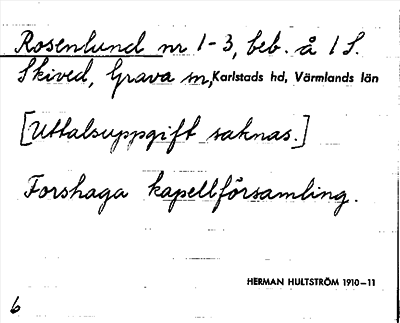 Rosenlund nr 1-3, beb. å 1 S.
Skived, Grava sn, Karlstads hd, Värmlands län
[Uttalsuppgift saknas.]
Forshaga kapellförsamling.
HERMAN HULTSTRÖM 1910-11
6